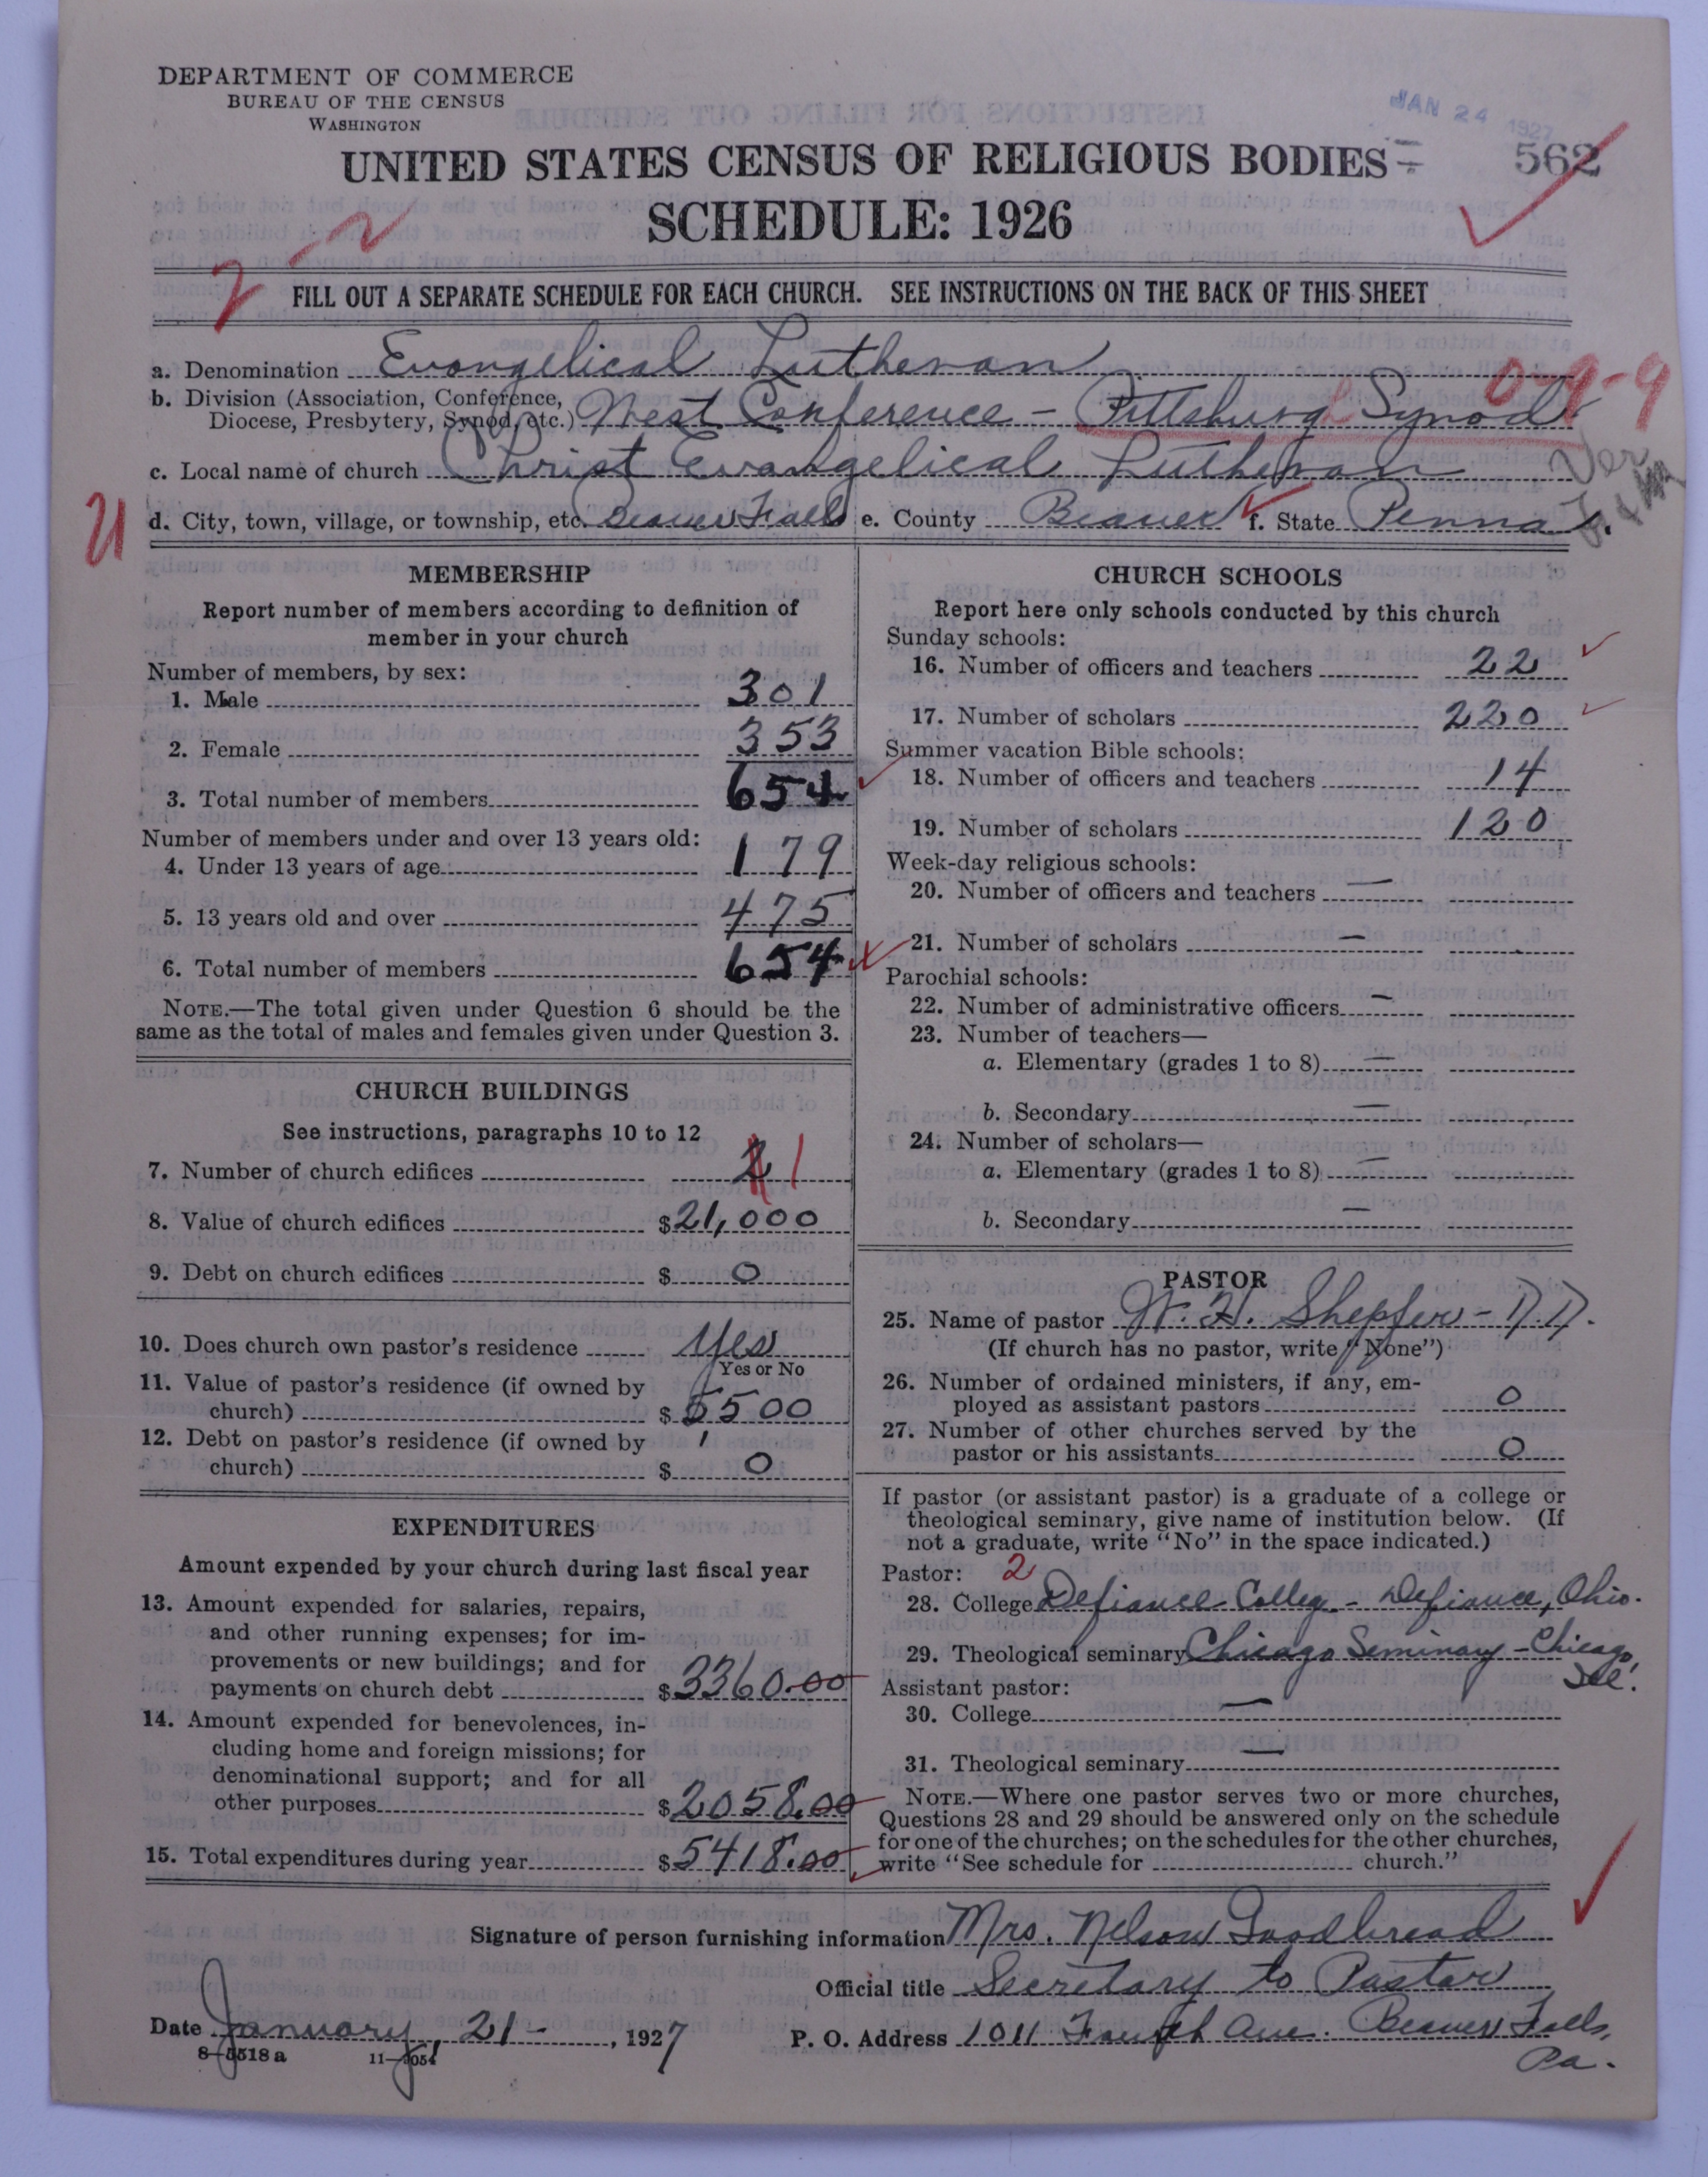 DEPARTMENT OF COMMERCE
BUREAU OF THE CENSUS
WASHINGTON
JAN 24 1927
UNITED STATES CENSUS OF RELIGIOUS BODIES
562
SCHEDULE: 1926
2-2
FILL OUT A SEPARATE SCHEDULE FOR EACH CHURCH. SEE INSTRUCTIONS ON THE BACK OF THIS SHEET
a. Denomination Evangelical Lutheran
0-9-9
b. Division (Association, Conference,
Diocese, Presbytery, Synod, etc.) West Conference - Pittsburgh Synod
c. Local name of church Christ Evangelical Lutheran
Ver
d. City, town, village, or township, etc. Beaver Falls e. County Beaver f. State Penna.
MEMBERSHIP
Report number of members according to definition of
member in your church
Number of members, by sex:
1. Male 301
2. Female 353
3. Total number of members 654
Number of members under and over 13 years old:
4. Under 13 years of age 179
5. 13 years old and over 475
6. Total number of members 654
NOTE.—The total given under Question 6 should be the
same as the total of males and females given under Question 3.
CHURCH BUILDINGS
See instructions, paragraphs 10 to 12
7. Number of church edifices 2 1
8. Value of church edifices $21,000
9. Debt on church edifices $ 0
10. Does church own pastor's residence Yes
Yes or No
11. Value of pastor's residence (if owned by
church) $ 5500
12. Debt on pastor's residence (if owned by
church) $ 0
EXPENDITURES
Amount expended by your church during last fiscal year
13. Amount expended for salaries, repairs,
and other running expenses; for im-
provements or new buildings; and for
payments on church debt $3360.00
14. Amount expended for benevolences, in-
cluding home and foreign missions; for
denominational support; and for all
other purposes $2058.00
15. Total expenditures during year $5418.00
CHURCH SCHOOLS
Report here only schools conducted by this church
Sunday schools:
16. Number of officers and teachers 22
17. Number of scholars 220
Summer vacation Bible schools:
18. Number of officers and teachers 14
19. Number of scholars 120
Week-day religious schools:
20. Number of officers and teachers —
21. Number of scholars —
Parochial schools:
22. Number of administrative officers —
23. Number of teachers—
a. Elementary (grades 1 to 8) —
b. Secondary —
24. Number of scholars—
a. Elementary (grades 1 to 8) —
b. Secondary —
PASTOR
25. Name of pastor W. H. Shepfer - D.D.
(If church has no pastor, write "None")
26. Number of ordained ministers, if any, em-
ployed as assistant pastors 0
27. Number of other churches served by the
pastor or his assistants 0
If pastor (or assistant pastor) is a graduate of a college or
theological seminary, give name of institution below. (If
not a graduate, write "No" in the space indicated.)
Pastor: 2
28. College Defiance College - Defiance, Ohio.
29. Theological seminary Chicago Seminary - Chicago,
Ill.
Assistant pastor:
30. College —
31. Theological seminary —
NOTE.—Where one pastor serves two or more churches,
Questions 28 and 29 should be answered only on the schedule
for one of the churches; on the schedules for the other churches,
write "See schedule for church."
Signature of person furnishing information Mrs. Nelson Goodbread
Official title Secretary to Pastor
Date January, 21 - , 1927
P. O. Address 1011 Fourth Ave. Beaver Falls,
Pa.
8-5518a